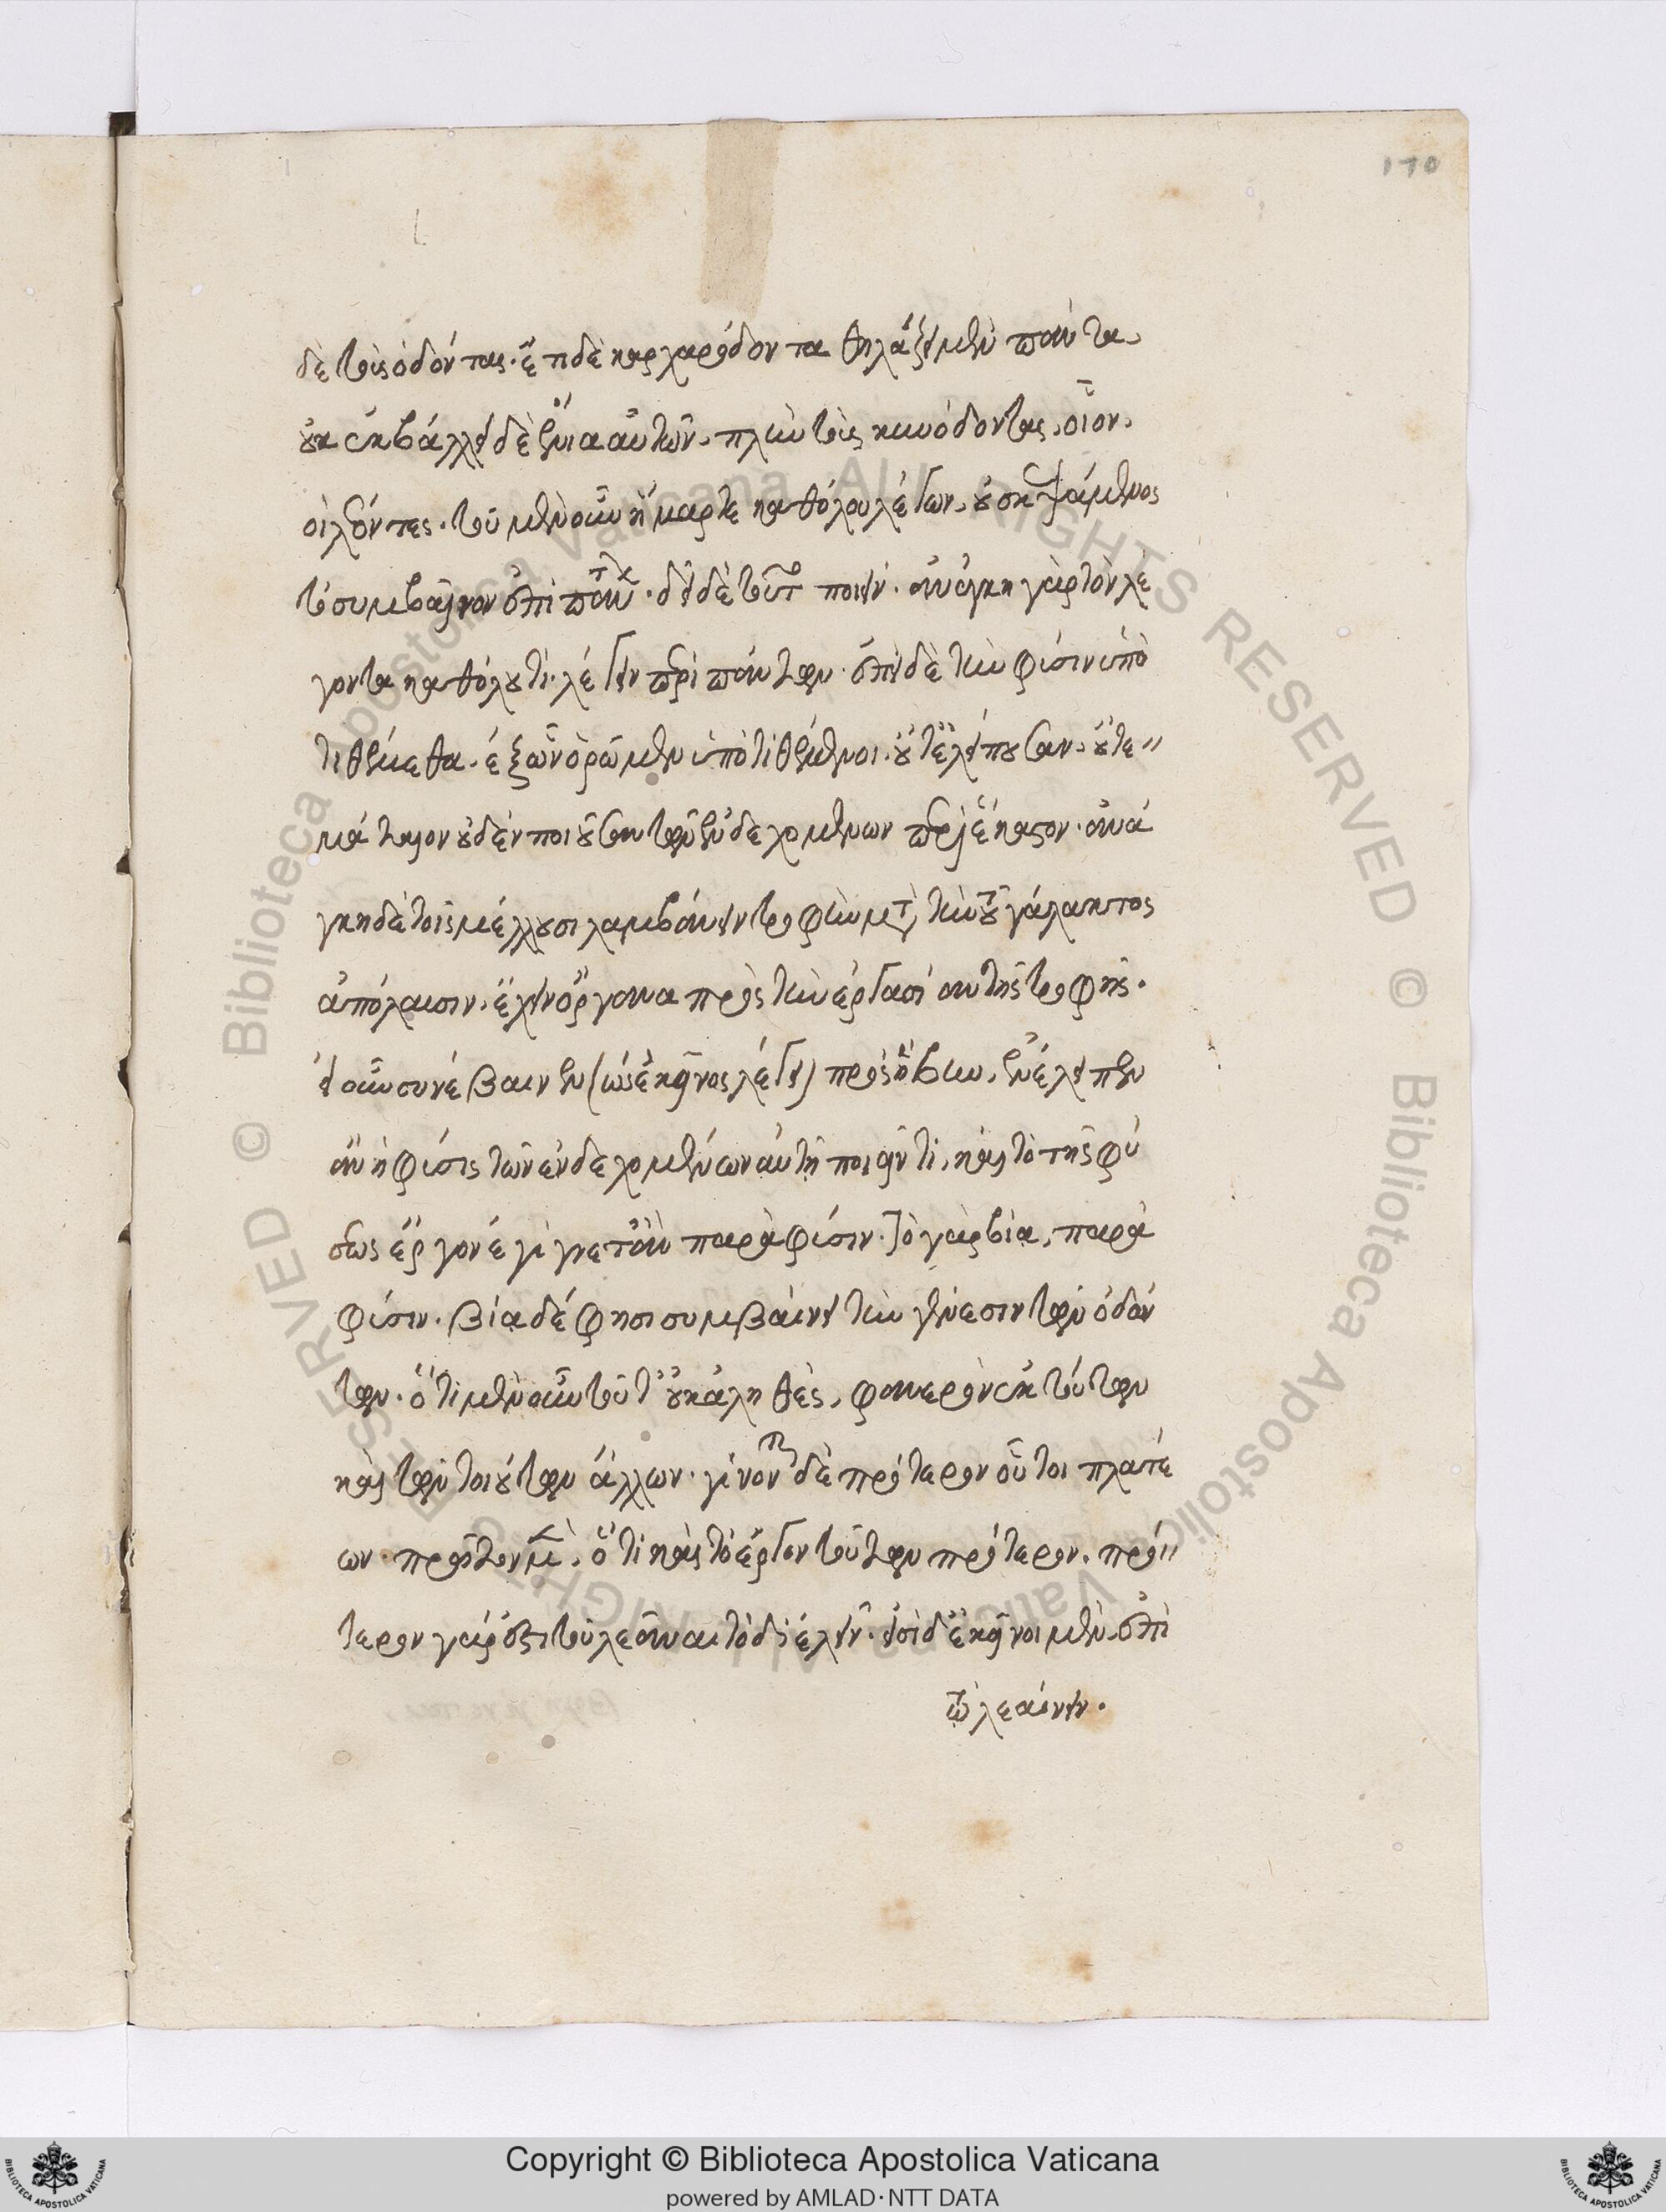 170
δὲ τοὺς ὀδόντας· ἔτι δὲ καρχαρόδοντα θηλάζει μὲν πάντα,
οὐκ ἐκβάλλει δὲ ἔνια αὐτῶν, πλὴν τοὺς κυνόδοντας, οἷον,
οἱ λέοντες. τοῦ μὲν οὖν ἥμαρτε καθόλου λέγων, οὐ σκεψάμενος
τὸ συμβαῖνον ἐπὶ πάντων. δεῖ δὲ τοῦτο ποιεῖν. ἀνάγκη γὰρ τὸν λέ
γοντα καθόλου τι, λέγειν περὶ πάντων. ἐπεὶ δὲ τὴν φύσιν ὑπο
τιθέμεθα, ἐξ ὧν ὁρῶμεν ὑποτιθέμενοι, οὔτ' ἐλλείπουσαν, οὔτε
μάταιον οὐδὲν ποιοῦσαν τῶν ἐνδεχομένων περὶ ἕκαστον. ἀνά
γκη δὲ τοῖς μέλλουσι λαμβάνειν τροφὴν μετὰ τὴν τοῦ γάλακτος
ἀπόλαυσιν, ἔχειν ὄργανα πρὸς τὴν ἐργασίαν τῆς τροφῆς.
εἰ οὖν συνέβαινεν (ὡς ἐκεῖνος λέγει) πρὸς ἥβην, ἐνέλειπεν
ἂν ἡ φύσις τῶν ἐνδεχομένων αὐτῇ ποιεῖν τι, καὶ τὸ τῆς φύ
σεως ἔργον ἐγίγνετ' ἂν παρὰ φύσιν. τὸ γὰρ βίᾳ, παρὰ
φύσιν. βίᾳ δέ φησι συμβαίνει τὴν γένεσιν τῶν ὀδόν
των. ὅτι μὲν οὖν τοῦτ' οὐκ ἀληθὲς, φανερὸν ἐκ τούτων
καὶ τῶν τοιούτων ἄλλων. γίνονται δὲ πρότερον οὗτοι πλατέ
ων. πρῶτον μὲν, ὅτι καὶ τὸ ἔργον τούτων πρότερον. πρό
τερον γάρ ἐστι τοῦ λεᾶναι τὸ διελεῖν. εἰσὶ δ' ἐκεῖνοι μὲν, ἐπὶ
τῷ λεαίνειν.
Copyright © Biblioteca Apostolica Vaticana
powered by AMLAD·NTT DATA